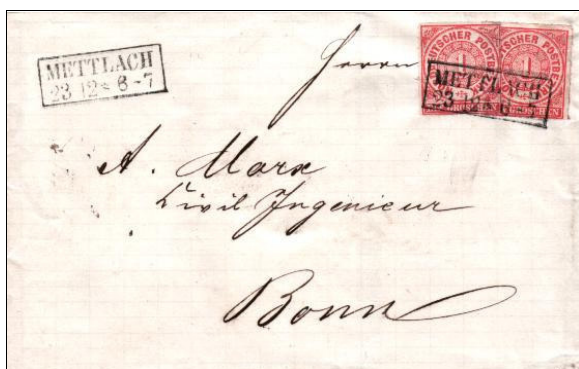 METTLACH
23 12 * 6-7
Herrn
DEUTSCHER POSTBE
1
GROSCHEN
DEUTSCHER POSTBE
1
GROSCHEN
METTLACH
23 12 * 6
A. Marx
Civil Ingenieur
Bonn